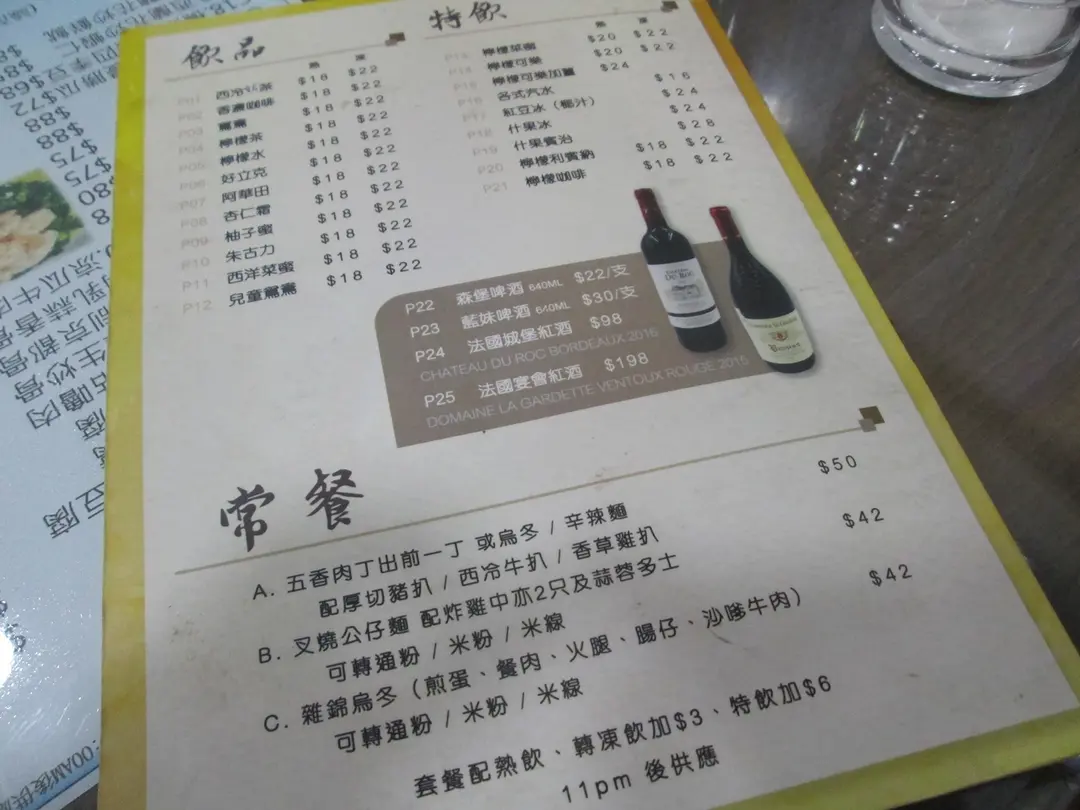 飲品
熱 凍
P01 西冷奶茶 $18 $22
P02 香濃咖啡 $18 $22
P03 鴛鴦 $18 $22
P04 檸檬茶 $18 $22
P05 檸檬水 $18 $22
P06 好立克 $18 $22
P07 阿華田 $18 $22
P08 杏仁霜 $18 $22
P09 柚子蜜 $18 $22
P10 朱古力 $18 $22
P11 西洋菜蜜 $18 $22
P12 兒童鴛鴦 $18 $22
特飲
熱 凍
P13 檸檬菜蜜 $20 $22
P14 檸檬可樂 $20 $22
檸檬可樂加薑 $24
P16 各式汽水 $16
P17 紅豆冰（椰汁） $24
P18 什果冰 $24
P19 什果賓治 $28
P20 檸檬利賓納 $18 $22
P21 檸檬咖啡 $18 $22
P22 森堡啤酒 640ML $22/支
P23 藍妹啤酒 640ML $30/支
P24 法國城堡紅酒 $98
CHATEAU DU ROC BORDEAUX 2016
P25 法國宴會紅酒 $198
DOMAINE LA GARDETTE VENTOUX ROUGE 2015
常餐
A. 五香肉丁出前一丁 或烏冬 / 辛辣麵 $50
配厚切豬扒 / 西冷牛扒 / 香草雞扒
B. 叉燒公仔麵 配炸雞中亦2只及蒜蓉多士 $42
可轉通粉 / 米粉 / 米線
C. 雜錦烏冬（煎蛋、餐肉、火腿、腸仔、沙嗲牛肉） $42
可轉通粉 / 米粉 / 米線
套餐配熱飲、轉凍飲加$3、特飲加$6
11pm 後供應